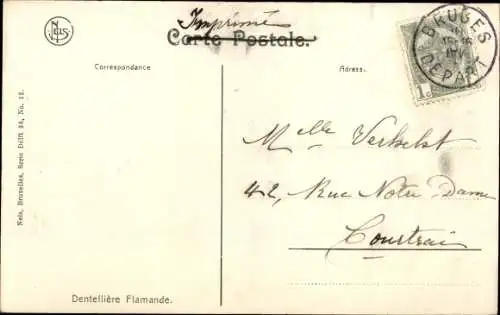 Imprimé
Carte Postale.
BRUGES
DEPART
1
Correspondance
Adress.
Nels, Bruxelles, Serie Delft 34, No. 12.
Melle Verhelst
42, Rue Notre Dame
Courtrai
Dentellière Flamande.